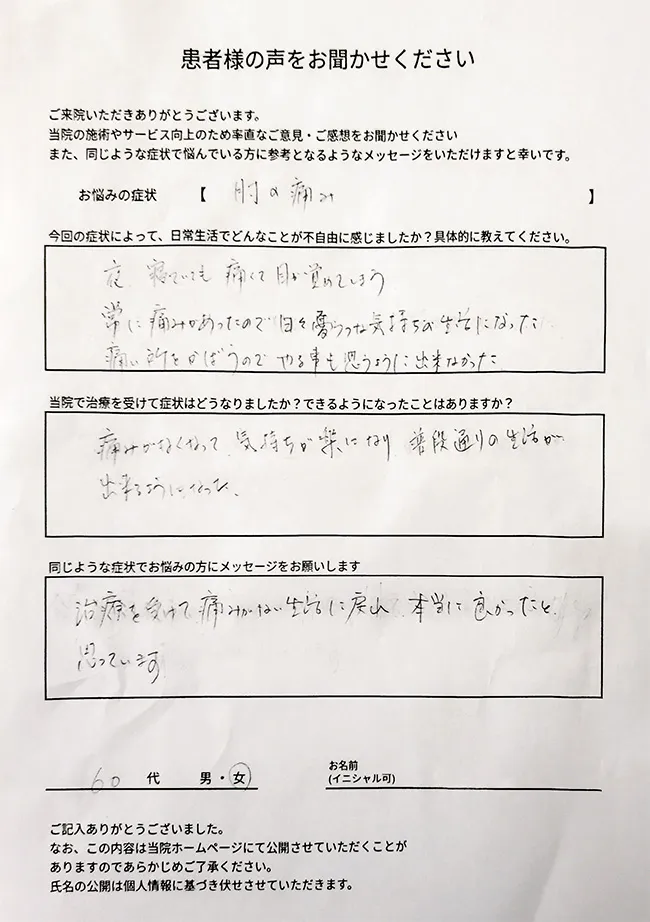 患者様の声をお聞かせください
ご来院いただきありがとうございます。
当院の施術やサービス向上のため率直なご意見・ご感想をお聞かせください
また、同じような症状で悩んでいる方に参考となるようなメッセージをいただけますと幸いです。
お悩みの症状 【 肘の痛み 】
今回の症状によって、日常生活でどんなことが不自由に感じましたか？具体的に教えてください。
夜、寝ていても痛くて目が覚めてしまう
常に痛みがあったので日々憂うつな気持ちの生活になった
痛い所をかばうのでやる事も思うように出来なかった
当院で治療を受けて症状はどうなりましたか？できるようになったことはありますか？
痛みがなくなって、気持ちが楽になり 普段通りの生活が
出来るようになった、
同じような症状でお悩みの方にメッセージをお願いします
治療を受けて痛みがない生活に戻れ、本当に良かったと、
思っています
60 代 男・女 お名前
(イニシャル可)
ご記入ありがとうございました。
なお、この内容は当院ホームページにて公開させていただくことが
ありますのであらかじめご了承ください。
氏名の公開は個人情報に基づき伏せさせていただきます。